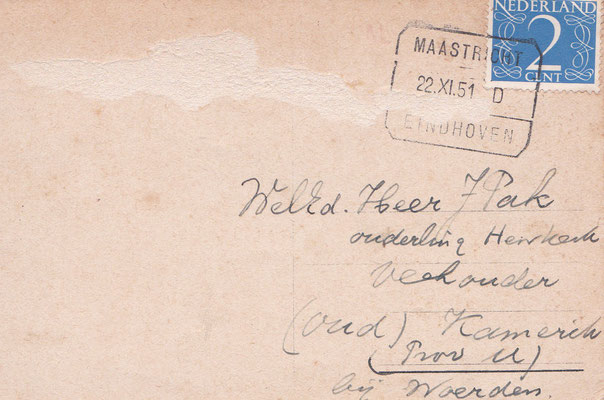 NEDERLAND
2
CENT
MAASTRICHT
22.XI.51 D
EINDHOVEN
WelEd. Heer J Pak
ouderling Hervkerk
Veehouder
(oud) Kamerik
(Prov U)
bij Woerden.